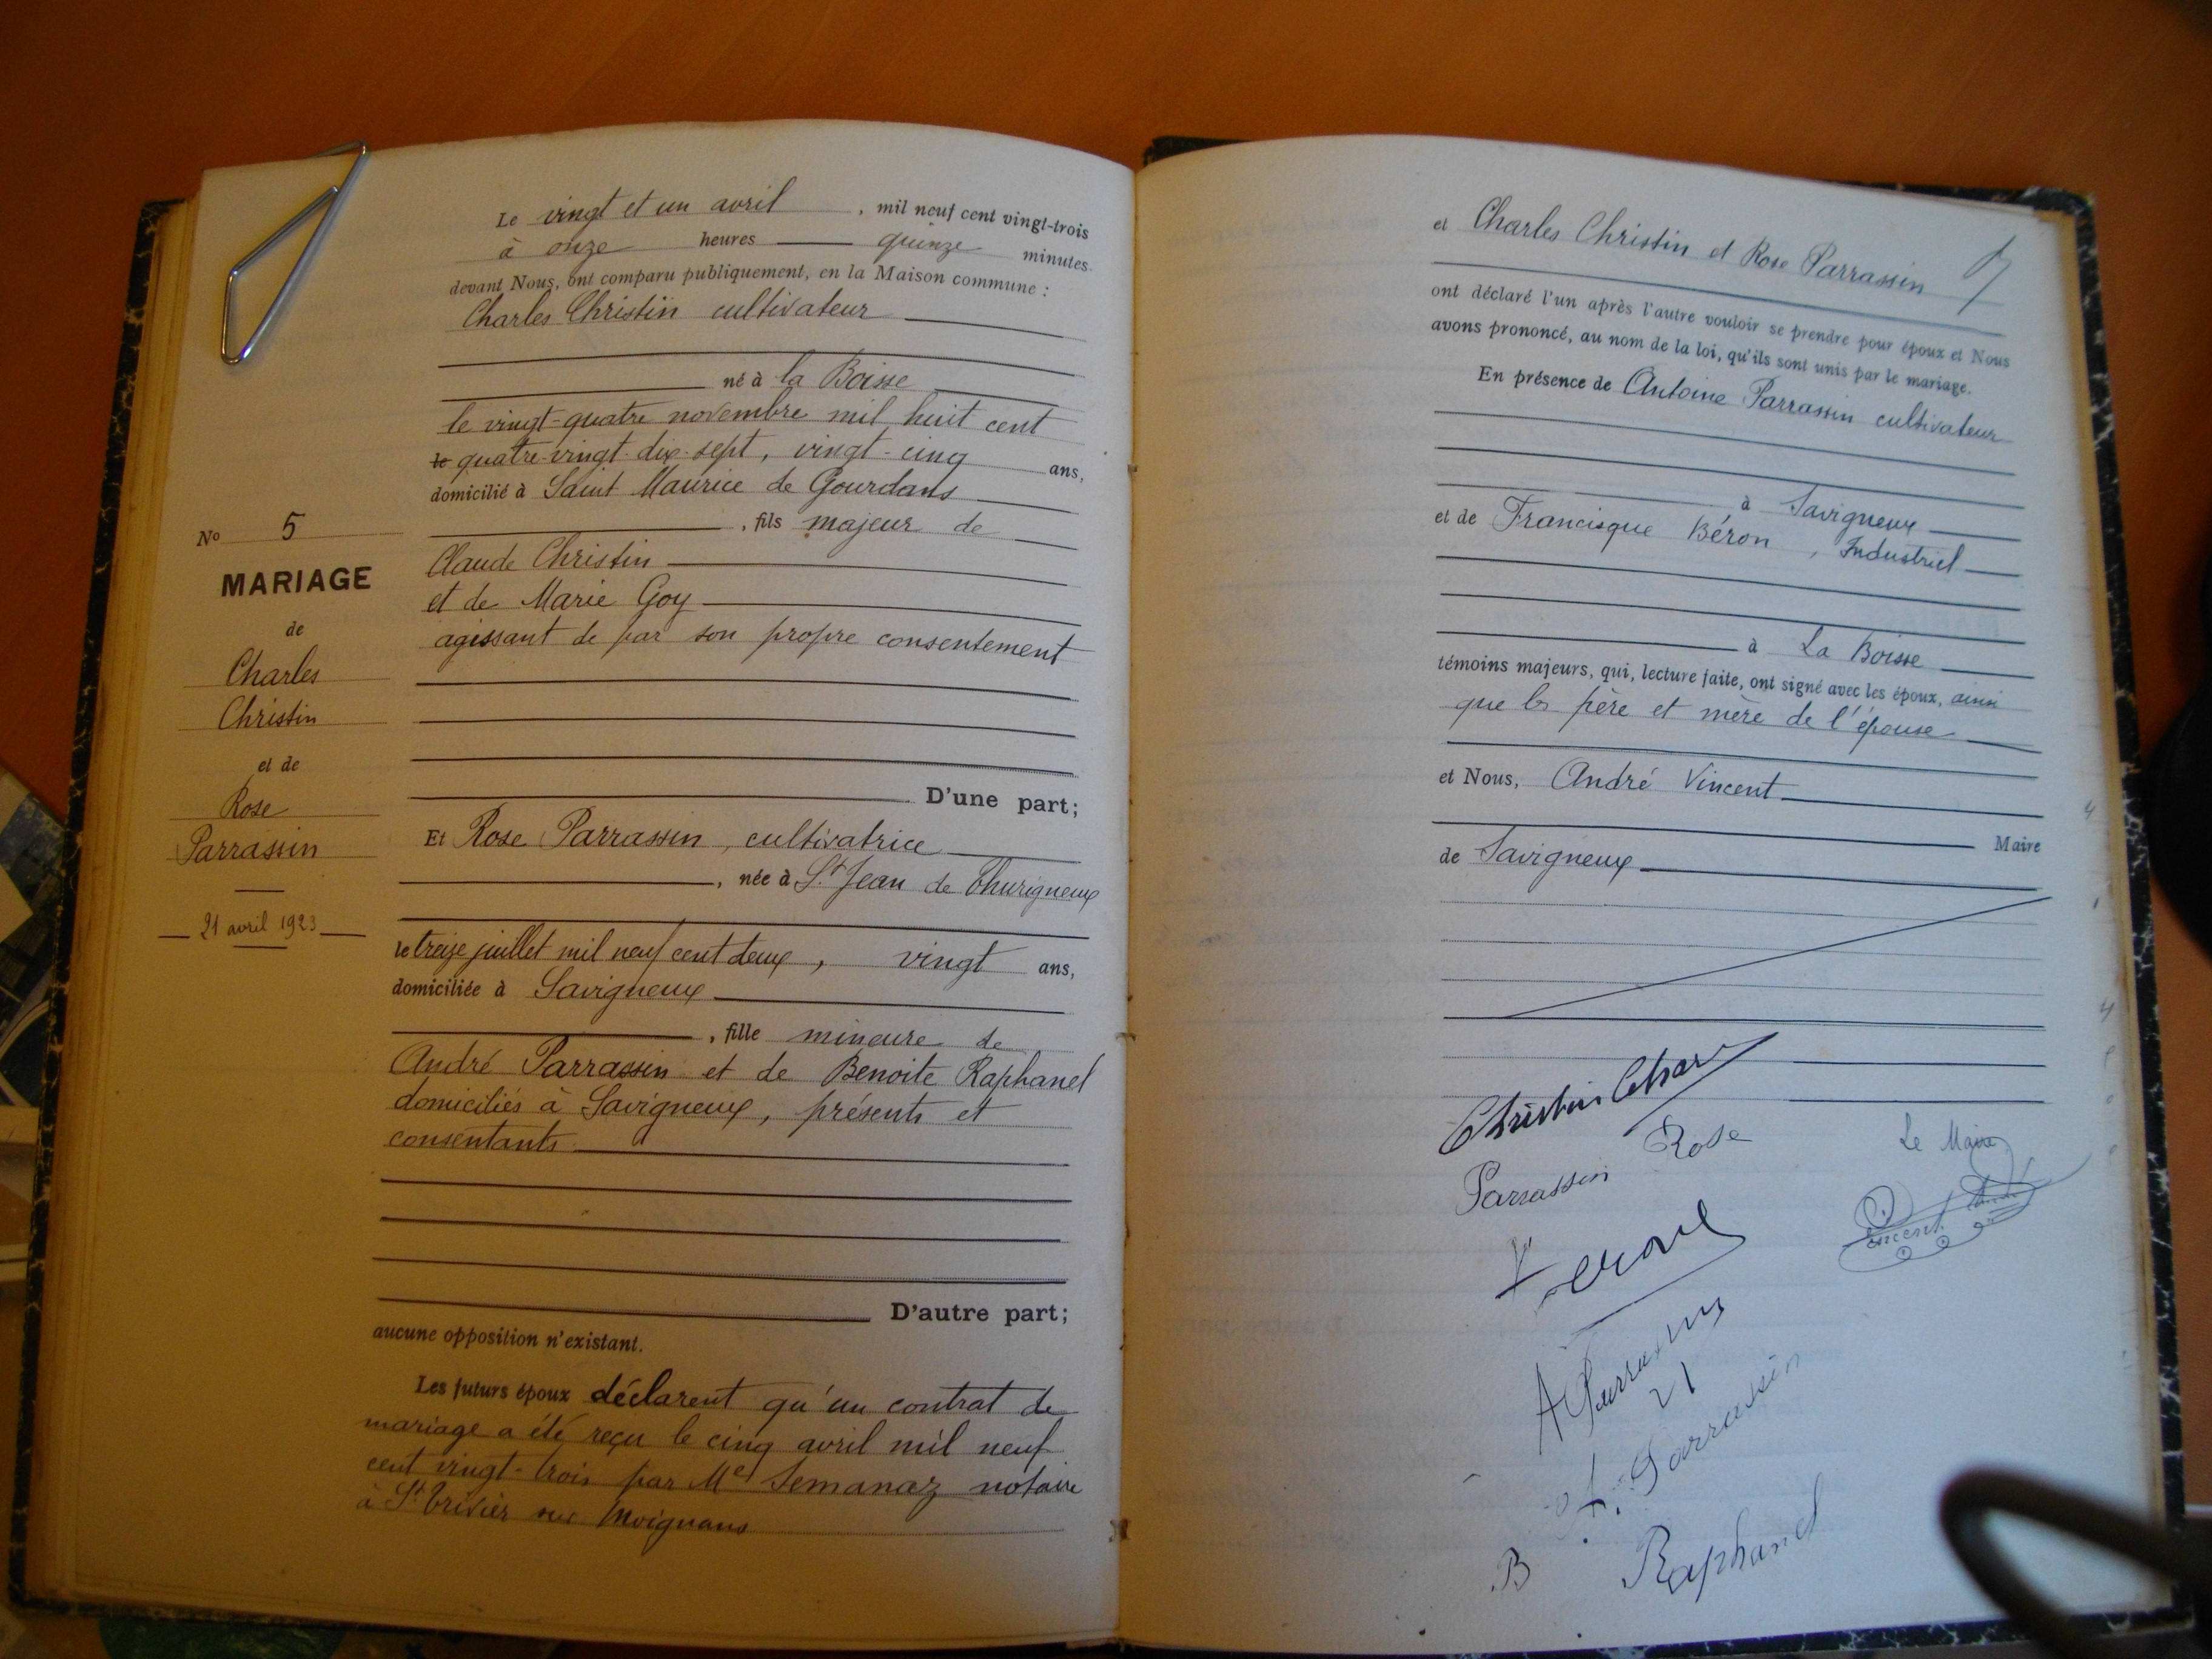 Le vingt et un avril , mil neuf cent vingt-trois
à onze heures quinze minutes
devant Nous, ont comparu publiquement, en la Maison commune :
Charles Christin cultivateur
né à la Boisse
le vingt-quatre novembre mil huit cent
le quatre-vingt-dix-sept, vingt-cinq ans,
domicilié à Saint Maurice de Gourdans
, fils majeur de
Claude Christin
et de Marie Goy
agissant de par son propre consentement
D'une part;
Et Rose Parrassin, cultivatrice
, née à St Jean de Thurigneux
le treize juillet mil neuf cent deux, vingt ans,
domiciliée à Savigneux
, fille mineure de
André Parrassin et de Benoite Raphanel
domiciliés à Savigneux, présents et
consentants.
D'autre part;
aucune opposition n'existant.
Les futurs époux déclarent qu'un contrat de
mariage a été reçu le cinq avril mil neuf
cent vingt-trois par Me Semanaz notaire
à St Trivier sur Moignans
No 5
MARIAGE
de
Charles
Christin
et de
Rose
Parrassin
21 avril 1923
et Charles Christin et Rose Parrassin
ont déclaré l'un après l'autre vouloir se prendre pour époux et Nous
avons prononcé, au nom de la loi, qu'ils sont unis par le mariage.
En présence de Antoine Parrassin cultivateur
à Savigneux
et de Francisque Béron, Industriel
à La Boisse
témoins majeurs, qui, lecture faite, ont signé avec les époux, ainsi
que les père et mère de l'épouse
et Nous, André Vincent
Maire
de Savigneux
Christin Charl
Parrassin Rose
Le Maire
Vincent
A Parrassin
A. Parrassin
B Raphanel